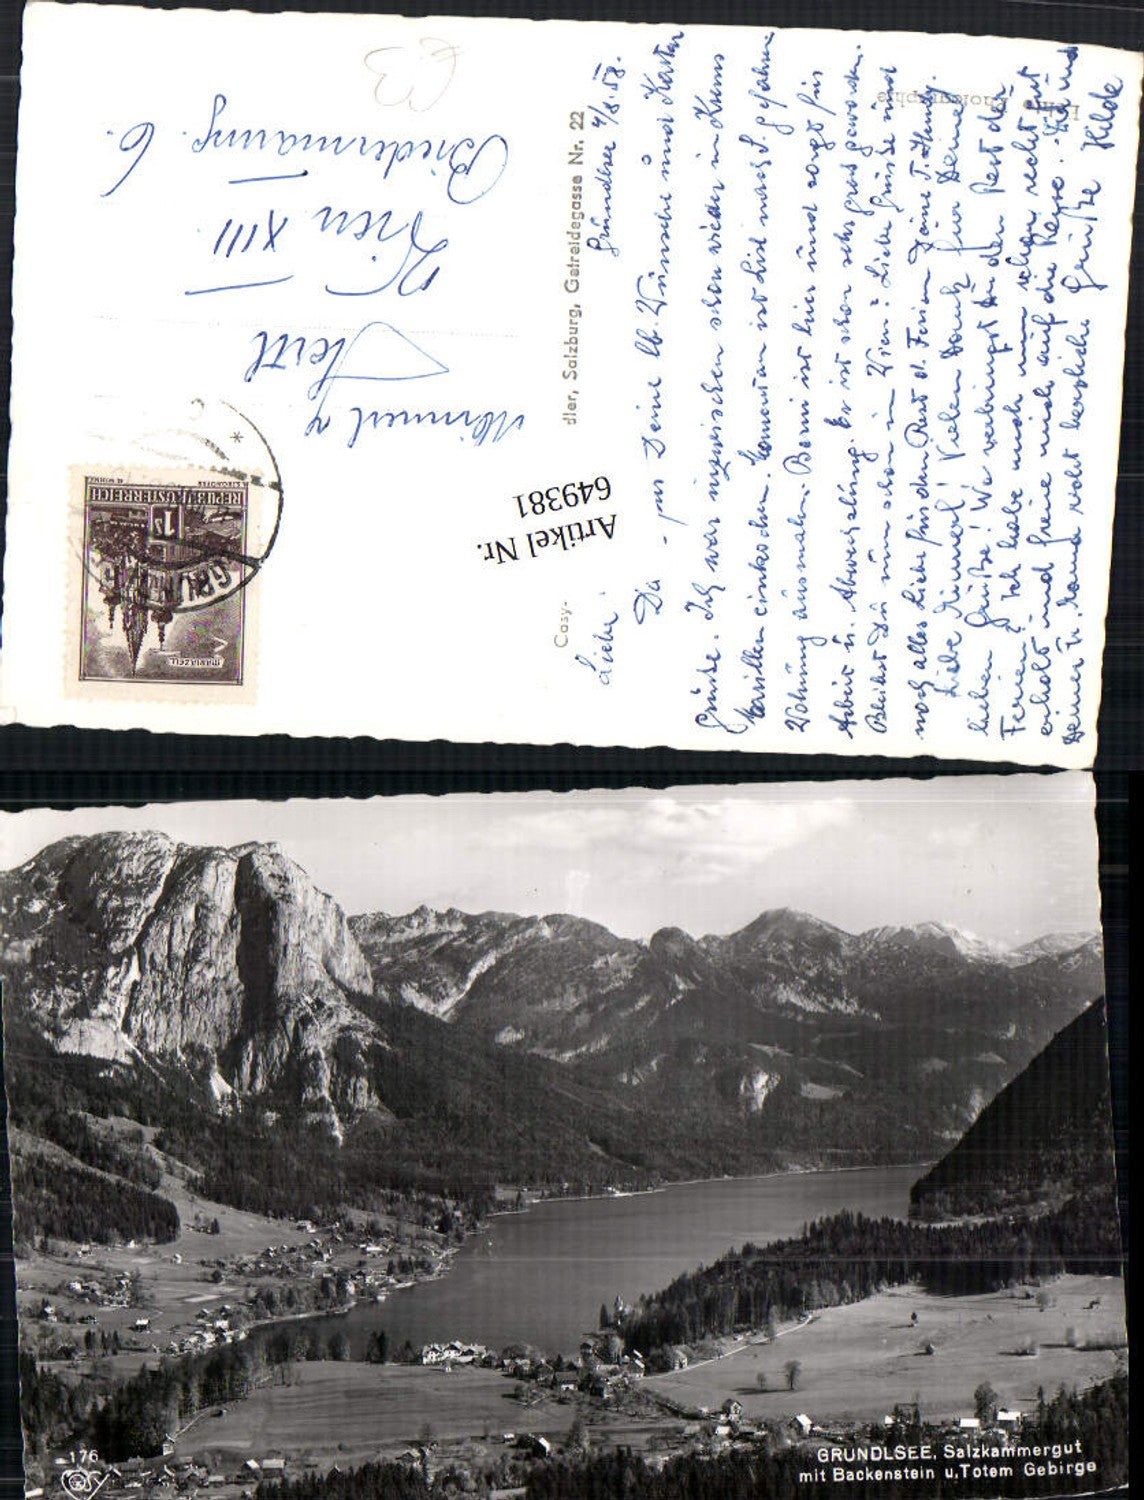 Grundlsee 4/8.58.
Liebe
Da - für Deine lb. Wünsche und Karten
Grüße. Ich war inzwischen schon wieder in Krems
Marillen einkochen. Momentan ist Lisl nach S. gefahren
Wohnung ausmalen. Berni ist hier und sorgt für
Arbeit u. Abwechslung. Er ist schon sehr groß geworden.
Bleibst Du nun schon in Wien? Liebe Grüße und
noch alles Liebe für den Rest d. Ferien Deine T. Hendy.
Liebe Mimmerl! Vielen Dank für Deine
lieben Grüße! Wo verbringst Du den Rest der
Ferien? Ich habe mich nun schon recht gut
erholt und freue mich auf die Reise. Dir und
Deiner lb. Mama recht herzliche Grüße Hilde
Mimmerl
Hertl
Wien XIII
Biedermanng. 6.
Cosy-
dler, Salzburg, Getreidegasse Nr. 22
Echte Photographie
Artikel Nr.
649381
MARIAZELL
1 S
REPUBLIK ÖSTERREICH
176
GRUNDLSEE, Salzkammergut
mit Backenstein u. Totem Gebirge